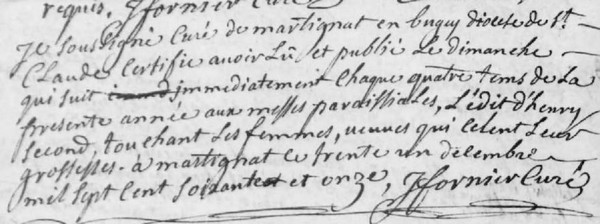 requis, Jfornier Curé
Je soussigné Curé de martignat en bugey diocèse de St.
Claude Certifie avoir Lû et publié Le dimanche
qui suit immediatement Chaque quatre tems de La
presente année aux messes paroissiales, L'édit d'henry
second, touchant Les femmes, veuves qui celent Leur
grossesses. à martignat ce trente un décembre
mil sept cent soixante et onze, Jfornier Curé